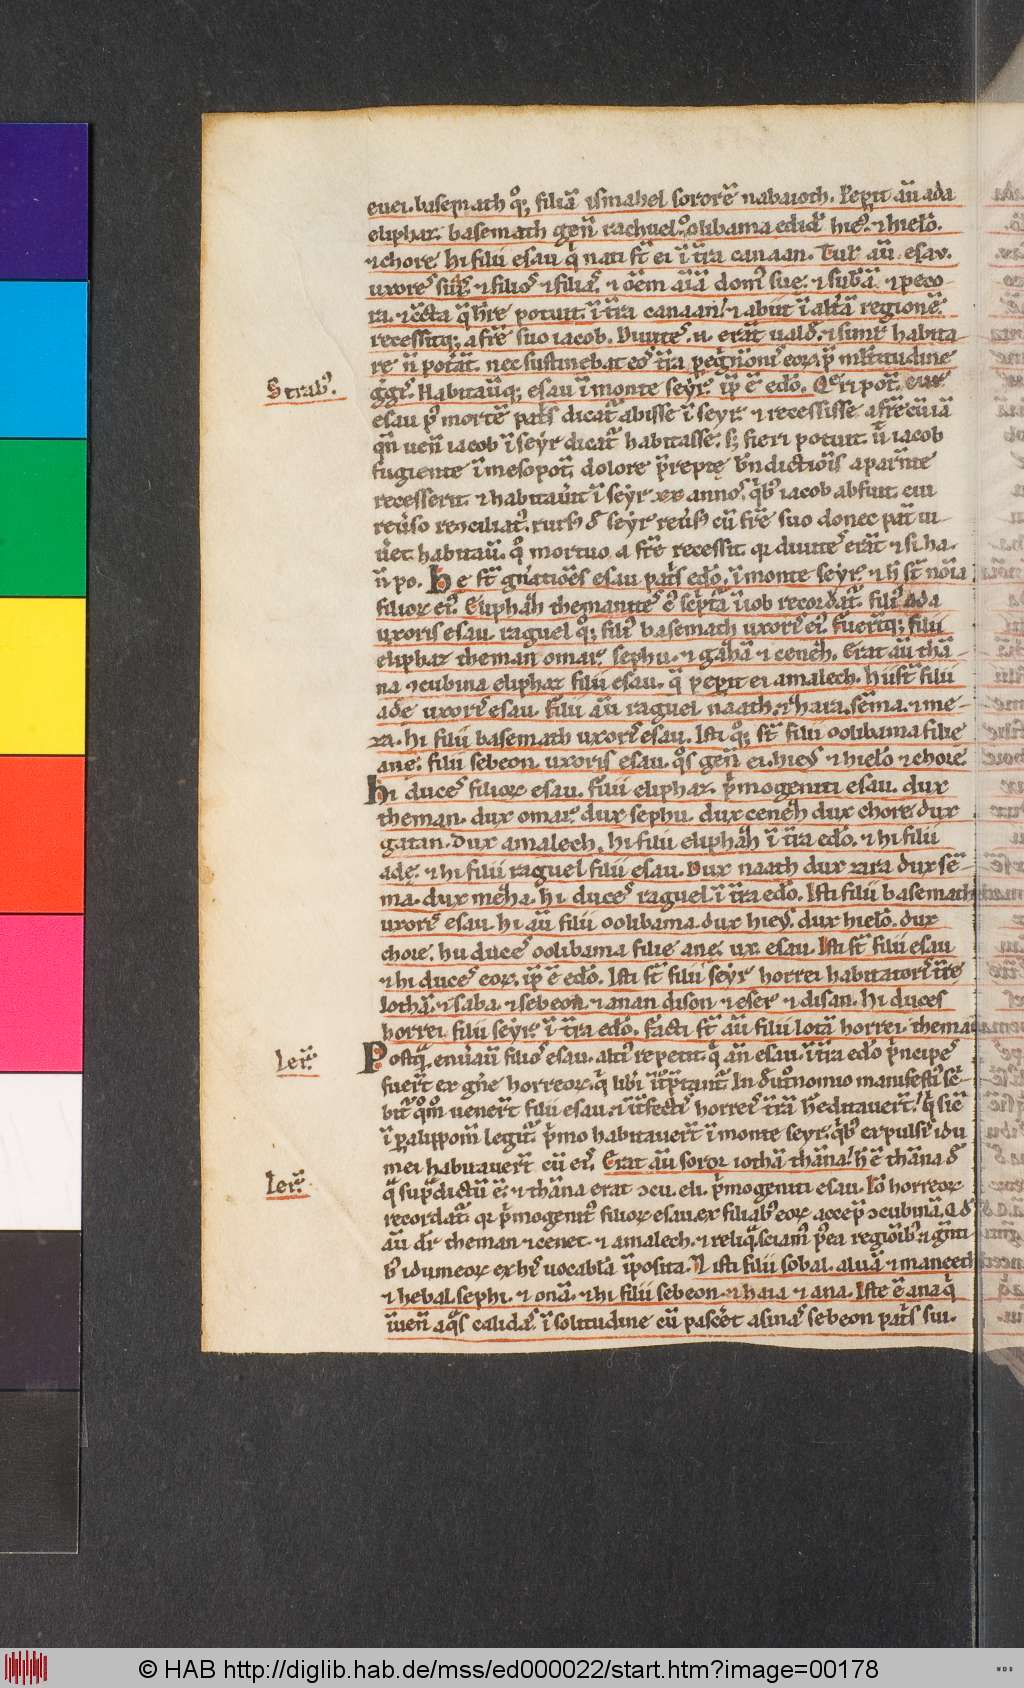 euei. basemath qͦꝫ filiā ysmahel sororē nabaioth. Peꝑit aū ada
eliphaz. basemath genͥ rachuel. olibama edidͭ hieꝰ ⁊ hielō.
⁊ chore hi filii esau qͥ nati sͭ ei ī tͬra canaan. Tulͭ aū esav.
uxoreˢ suaˢ. ⁊ filioˢ ⁊ filiaˢ. ⁊ oēm aīā domꝰ sue. ⁊ sub̄ā ⁊ peco
ra. ⁊ cc̄ta q̄ hͬe potuit ī tͬra canaan. ⁊ abiit ī alt̄ā regionē.
recessitqꝫ a fͬre suo iacob. Diuiteˢ .n. erāt ualdͤ. ⁊ simͭ habita
re n̄ potāt. nec sustinebat eoˢ tͬra peg̃ͥnonͥˢ eorꝫ p̄ mltitudine
Strabꝰ.
gͬgͬ. Habitauͭqꝫ esau ī monte seyr. ip̄ ē edō. Qͬeri potͭ. cur
esau pͭ mortē patͥs dicatͬ abisse ī seyr. ⁊ recessisse a fͬre cū iā
qn̄ uenͭ iacob ī seyr dicatͬ habitasse. sꝫ fieri potuit. ut iacob
fugiente ī mesopotͣ. dolore p̄repte bn̄dictiōis a parn̄te
recesserit. ⁊ habitauͬit ī seyr xx annoˢ. qͥbꝰ iacob abfuit. cui
reuͬso recͻciliatͬ. rursͦ d̄ seyr reuͬsͦ cū fͬre suo donec patͬ ui
uͬet habitauͭ. qͦ mortuo a fͬre recessit. qꝛ diuiteˢ erāt ⁊ si. ha.
n̄ po. He sͭ gn̄atiōes esau patͥs edō. ī monte seyr. ⁊ h̄ sͭ nōīa
filiorꝫ eiꝰ. Eliphaͨh themanitēˢ ē sc̄pta ī iob recordatͬ. filiꝰ ada
uxoris esau. raguel qͦꝫ filiꝰ basemath uxorͥˢ eiꝰ. Fuerͭqꝫ filii
eliphaz theman omar. sephu. ⁊ gaͭhā ⁊ ceneͨh. Erat aū thā
na ͻcubina eliphaz filii esau. q̄ peperit ei amalech. Hii sͭ filii
ade uxorͥˢ esau. Filii aū raguel naath. ⁊ haira. sēma. ⁊ me-
za. hi filii basemath uxorͥˢ esau. Isti qͦꝫ sͭ filii oolibama filie
ane. filii sebeon uxoris esau. qͦs genͥ ei. hieꝰ ⁊ hielō ⁊ chore
Hi duceˢ filiorꝫ esau. Filii eliphaz. p̄mogeniti esau. dux
theman. dux omar. dux sephu. dux ceneͨh dux chore dux
gatan. Dux amalech. hi filii eliphaͨh ī tͬra edō. ⁊ hi filii
adę. ⁊ hi filii raguel filii esau. Dux naath dux zara dux sē
ma. dux meͨha. hi duceˢ raguel ī tͬra edō. Isti filii basemath
uxorͥˢ esau. hi aū filii oolibama. dux hieꝰ. dux hielō. dux
chore. hii duceˢ oolibama filie ane. ux. esau. Isti sͭ filii esau
⁊ hi duceˢ eorꝫ. ip̄ ē edō. Isti sͭ filii seyr horrei habitatorͤˢ tͬre
Iothā. ⁊ saba. ⁊ sebeon. ⁊ anan dison ⁊ eser ⁊ disan. Hi duces
horrei filii seyr ī tͬra edō. Facti sͭ aū filii lotā horrei. thema
Ierͬ.
Postqͣ enuͬauͭ filioˢ esau. altiꝰ repetit qͥ an̄ esau. ī tͬra edō p̄ncipeˢ
fuerͭ ex gn̄e horreorꝫ. qͥ libͥ ītͬp̄tantͬ. In deutͦnomio manifestiꝰ sc̄-
bitͬ qͦmͦ venerͭ filii esau. ⁊ ītͬfectiˢ horreiˢ tͬrā h̄editauerͭ. qͥ sic̄
ī ꝑalippom̄ legitͬ. p̄mo habitauerͭ ī monte seyr. qͥbꝰ expulsiˢ idu
mei habitauerͭ cū eiˢ. Erat aū soror iothā thāna. h̄ ē thāna d̄
Ierͬ.
q̄ sup̄dictū ē. ⁊ thāna erat ͻcu. eli. p̄mogeniti esau. Iō horreorꝫ
recordatͬ. qꝛ p̄mogenitꝰ filiorꝫ esau. ex filiabꝰ eorꝫ accep̄ ͻcubinā. Q d̄
aū dr̄ theman ⁊ cenet ⁊ amalech. ⁊ reliqͣ. sciamꝰ p̄ea regiōibꝰ ⁊ gn̄ti
bꝰ idumeorꝫ ex hiˢ uocabl̄a īposita. Et isti filii sobal. aluā ⁊ maneeth
⁊ hebal. sephi. ⁊ onā. ⁊ hi filii sebeon ⁊ haia ⁊ ana. Iste ē ana qͥ
īuenͭ aqͣs calidaˢ ī solitudine cū pascͬet asinaˢ sebeon patͥs sui.
© HAB http://diglib.hab.de/mss/ed000022/start.htm?image=00178